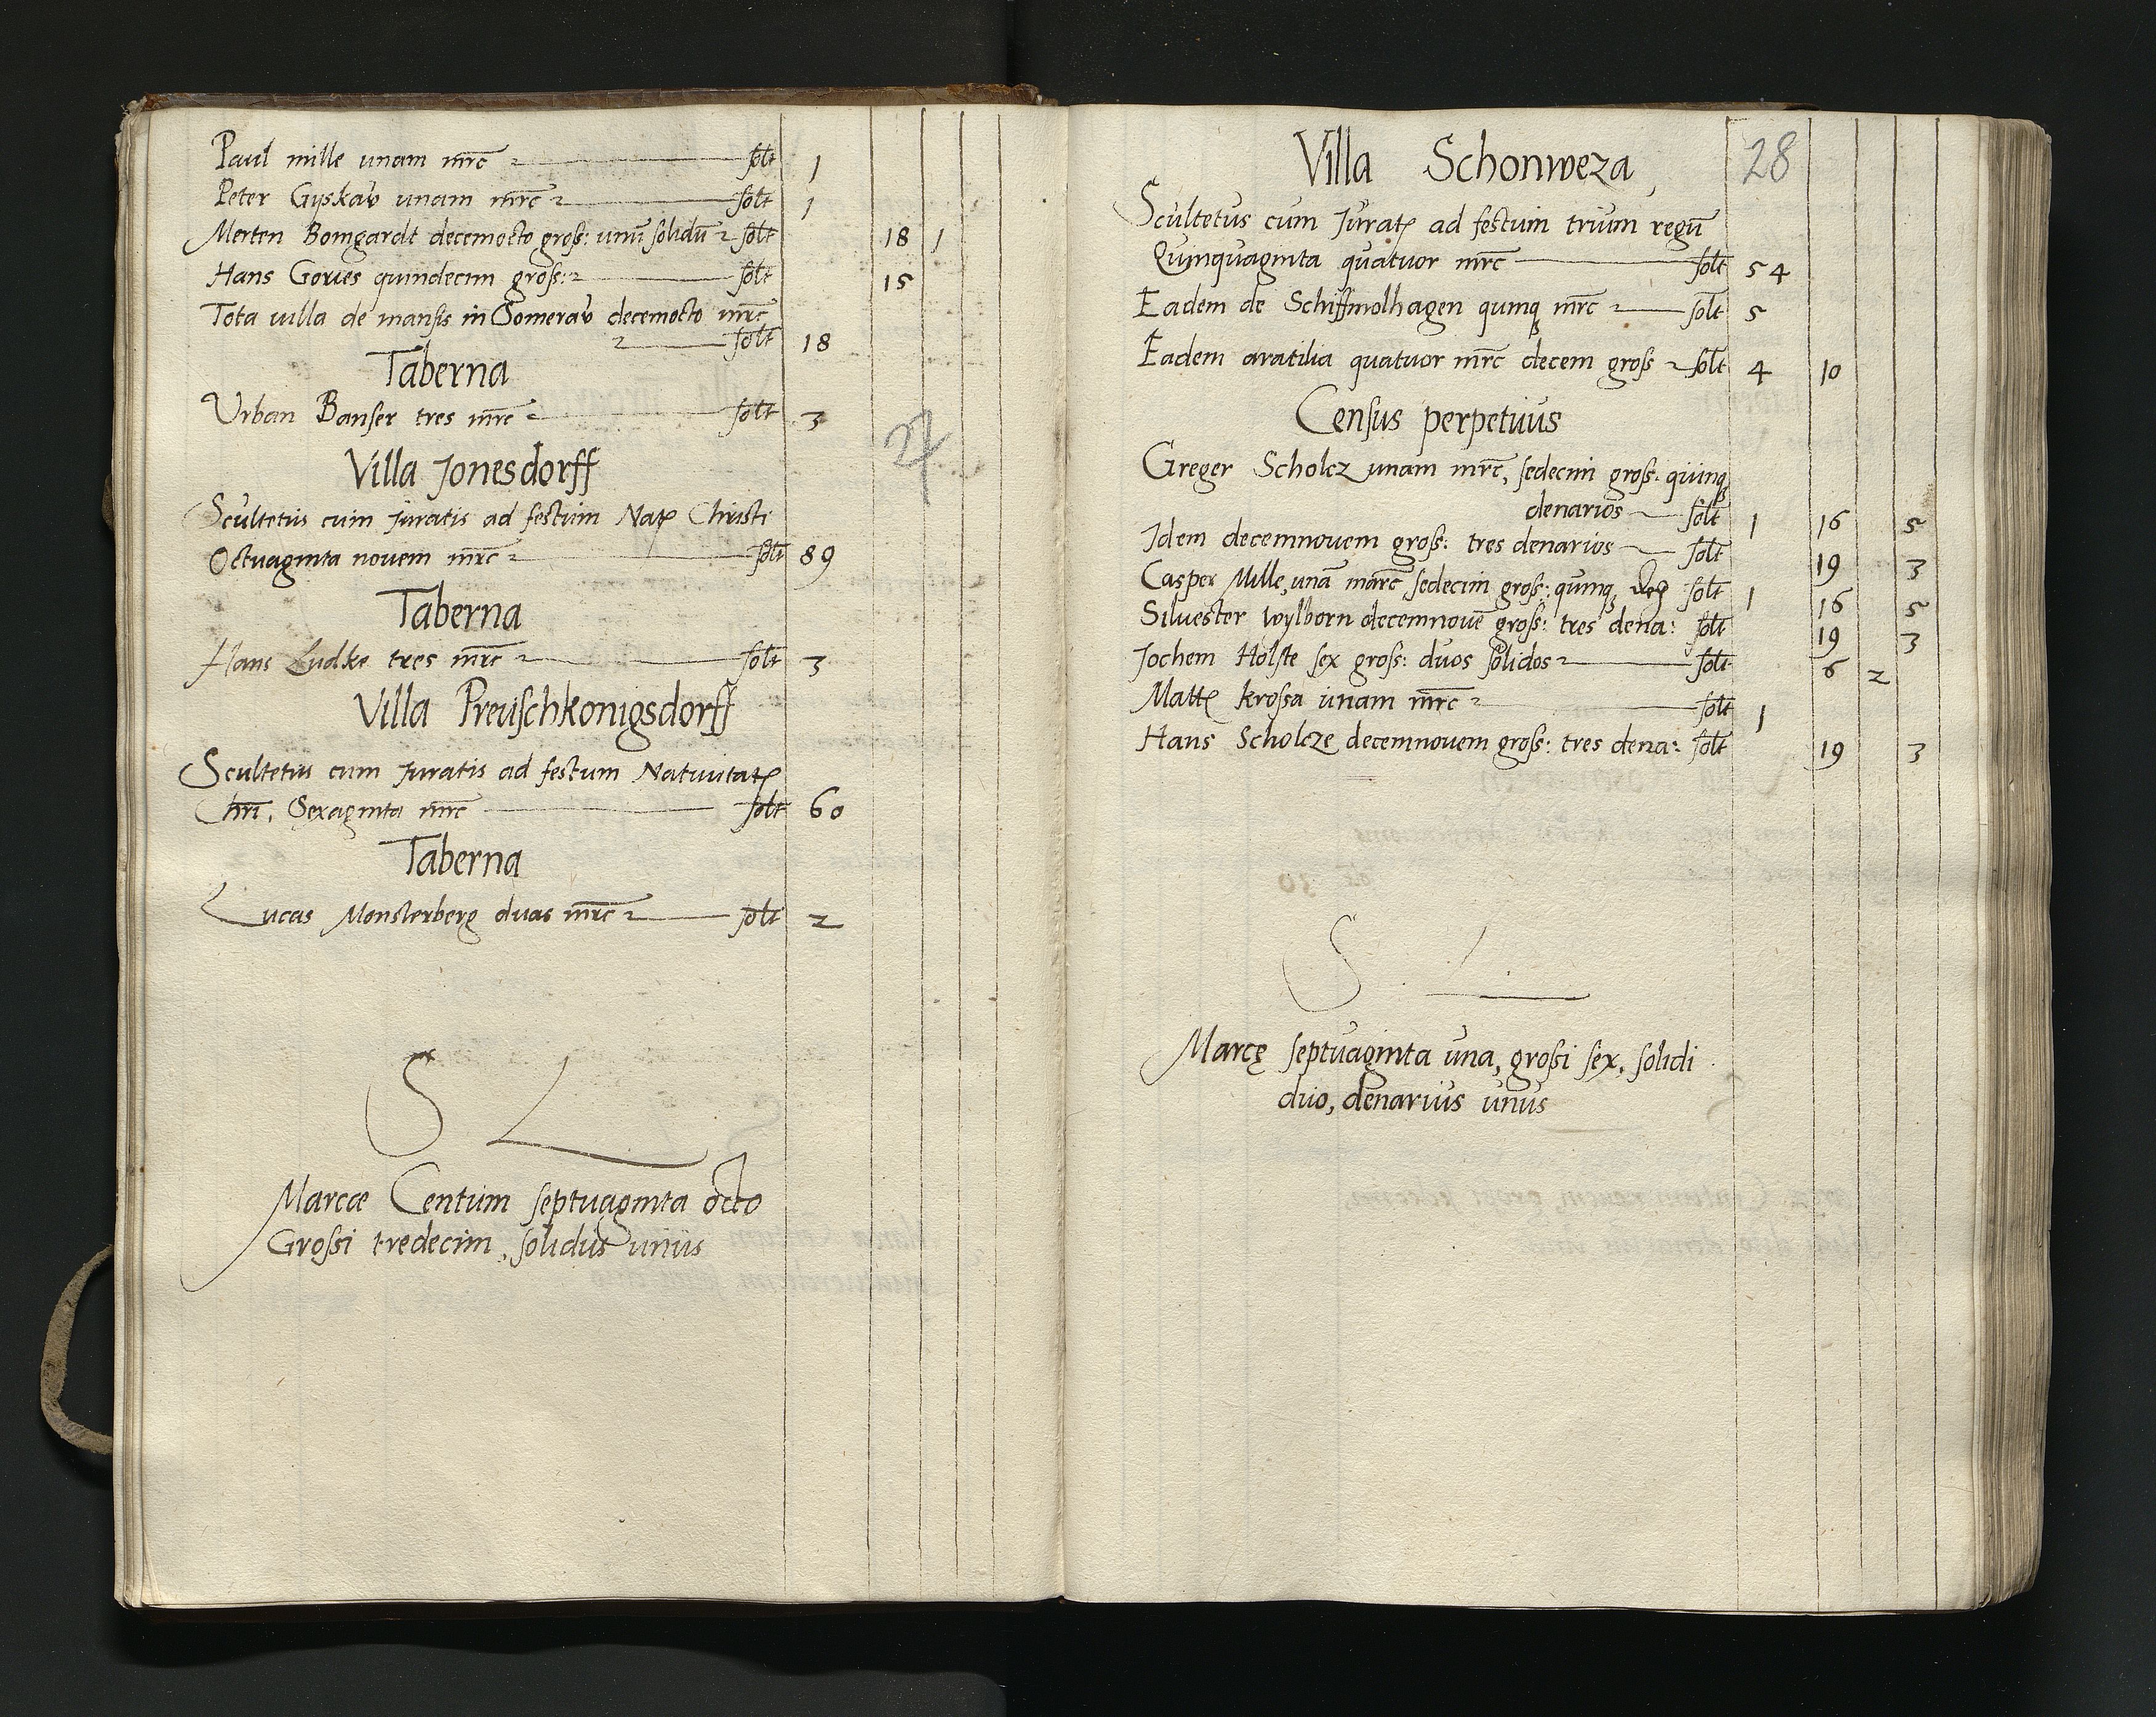 Paul mille unam mrc solt 1
Peter Gyskaw unam mrc solt 1
Merten Bomgardt decemocto gross: unu solidu solt 18 1
Hans Gories quindecim gross: solt 15
Tota villa de mansis in Someraw decemocto mrc
solt 18
Taberna
Urban Banser tres mrc solt 3
27
Villa Jonesdorff
Scultetus cum Juratis ad festum Nat Christi
Octuaginta novem mrc solt 89
Taberna
Hans Ludke tres mrc solt 3
Villa Preuschkonigsdorff
Scultetus cum Juratis ad festum Nativitat
Chri, Sexaginta mrc solt 60
Taberna
Lucas Monsterberg duas mrc solt 2
S L
Marcae Centum septuaginta octo
Grossi tredecim, solidus unus
Villa Schonweza 28
Scultetus cum Jurat ad festum trium regu
Quinquaginta quatuor mrc solt 54
Eadem de Schiffmolhagen quinq mrc solt 5
Eadem aratilia quatuor mrc decem gross solt 4 10
Census perpetuus
Greger Scholcz unam mrc, sedecim gross: quinq
denarios solt 1 16 5
Idem decemnovem gross: tres denarios solt 19 3
Casper Mille, una marc sedecim gross: quinq solt 1 16 5
Silvester Wylborn decemnove gross: tres dena: solt 19 3
Jochem Holste sex gross: duos solidos solt 6 2
Matt Krossa unam mrc solt 1
Hans Scholcze decemnovem gross: tres dena: solt 19 3
S L
Marcę septuaginta una, grossi sex, solidi
duo, denarius unus